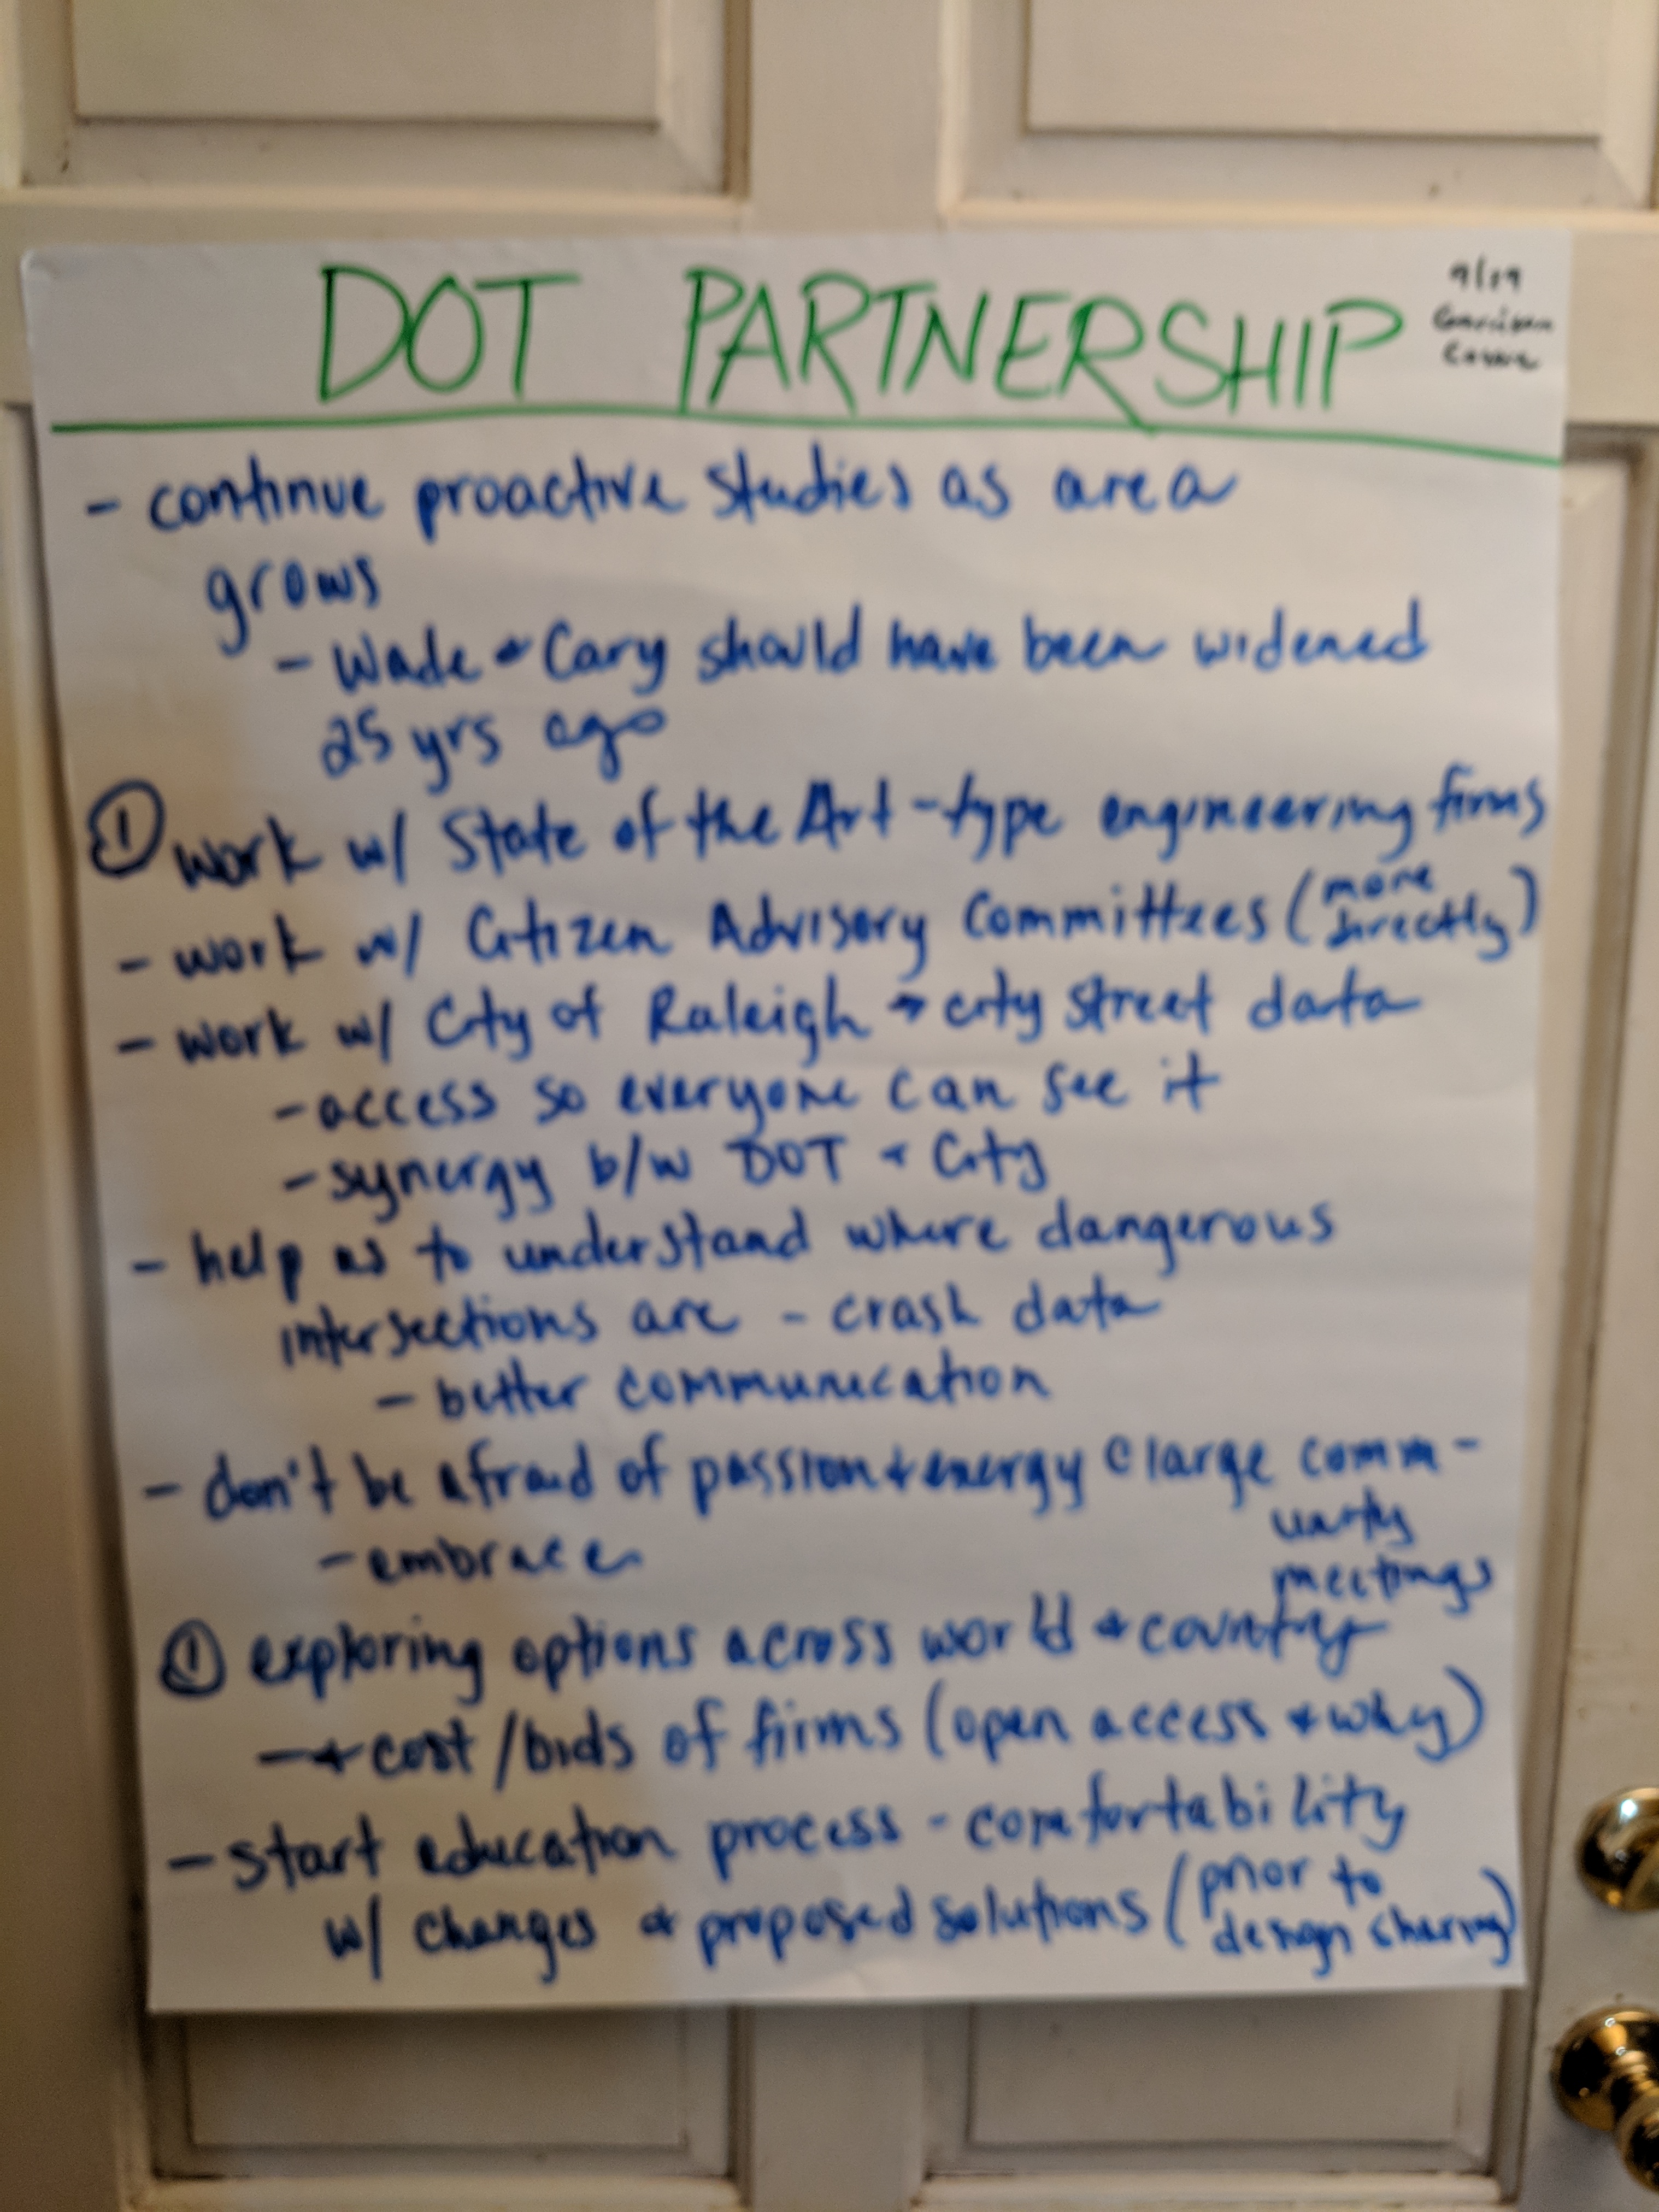 DOT PARTNERSHIP
9/19
- continue proactive studies as area
grows
- Wade & Cary should have been widened
25 yrs ago
① work w/ State of the Art-type engineering firms
- work w/ Citizen Advisory Committees (more directly)
- work w/ City of Raleigh → city street data
- access so everyone can see it
- synergy b/w DOT & City
- help us to understand where dangerous
intersections are - crash data
- better communication
- don't be afraid of passion & energy @ large comm-
unity
- embrace
meetings
① exploring options across world & country
→ cost/bids of firms (open access & why)
- start education process - comfortability
w/ changes & proposed solutions (prior to design sharing)